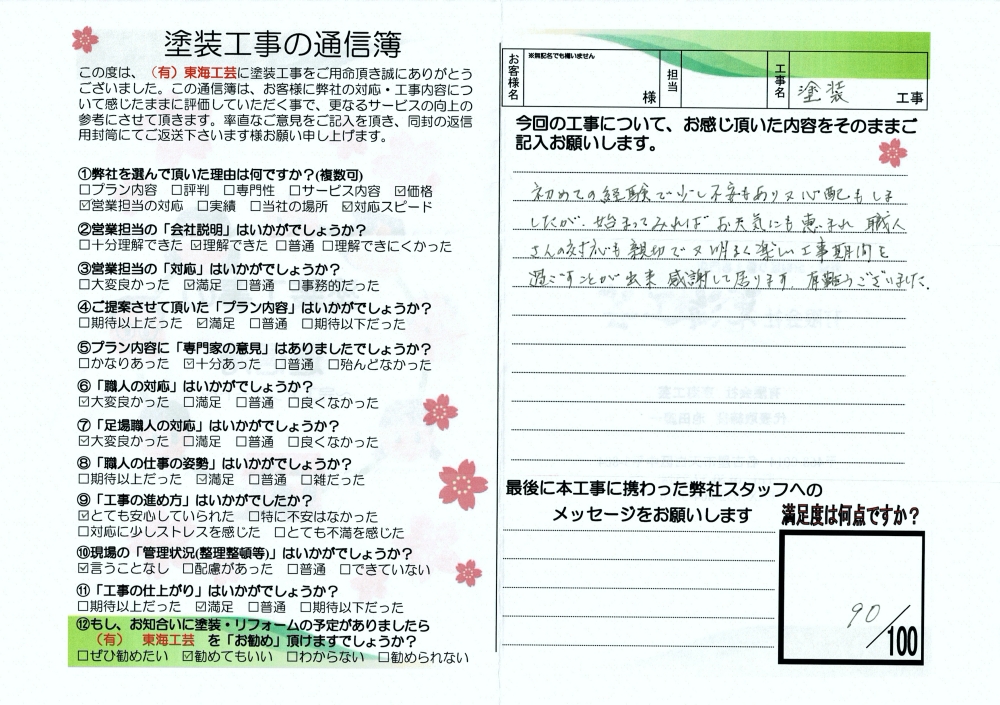 塗装工事の通信簿
この度は、（有）東海工芸に塗装工事をご用命頂き誠にありがとう
ございました。この通信簿は、お客様に弊社の対応・工事内容につ
いて感じたままに評価していただく事で、更なるサービスの向上の
参考にさせて頂きます。率直なご意見をご記入を頂き、同封の返信
用封筒にてご返送下さいます様お願い申し上げます。
①弊社を選んで頂いた理由は何ですか？(複数可)
□プラン内容 □評判 □専門性 □サービス内容 ☑価格
☑営業担当の対応 □実績 □当社の場所 ☑対応スピード
②営業担当の「会社説明」はいかがでしょうか？
□十分理解できた ☑理解できた □普通 □理解できにくかった
③営業担当の「対応」はいかがでしょうか？
□大変良かった ☑満足 □普通 □事務的だった
④ご提案させて頂いた「プラン内容」はいかがでしょうか？
□期待以上だった ☑満足 □普通 □期待以下だった
⑤プラン内容に「専門家の意見」はありましたでしょうか？
□かなりあった ☑十分あった □普通 □殆んどなかった
⑥「職人の対応」はいかがでしょうか？
☑大変良かった □満足 □普通 □良くなかった
⑦「足場職人の対応」はいかがでしょうか？
☑大変良かった □満足 □普通 □良くなかった
⑧「職人の仕事の姿勢」はいかがでしょうか？
□期待以上だった ☑満足 □普通 □雑だった
⑨「工事の進め方」はいかがでしたか？
☑とても安心していられた □特に不安はなかった
□対応に少しストレスを感じた □とても不満を感じた
⑩現場の「管理状況(整理整頓等)」はいかがでしょうか？
☑言うことなし □配慮があった □普通 □できていない
⑪「工事の仕上がり」はいかがでしょうか？
□期待以上だった ☑満足 □普通 □期待以下だった
⑫もし、お知合いに塗装・リフォームの予定がありましたら
（有） 東海工芸 を「お勧め」頂けますでしょうか？
□ぜひ勧めたい ☑勧めてもいい □わからない □勧められない
お客様名 ※無記名でも構いません 様 担当 工事名 塗装 工事
今回の工事について、お感じ頂いた内容をそのままご
記入お願いします。
初めての経験で少し不安もあり又心配もしま
したが、始まってみればお天気にも恵まれ 職人
さんの対応も親切で又明るく楽しい工事期間を
過ごすことが出来 感謝して居ります。有難うございました。
最後に本工事に携わった弊社スタッフへの
メッセージをお願いします
満足度は何点ですか？
90/100